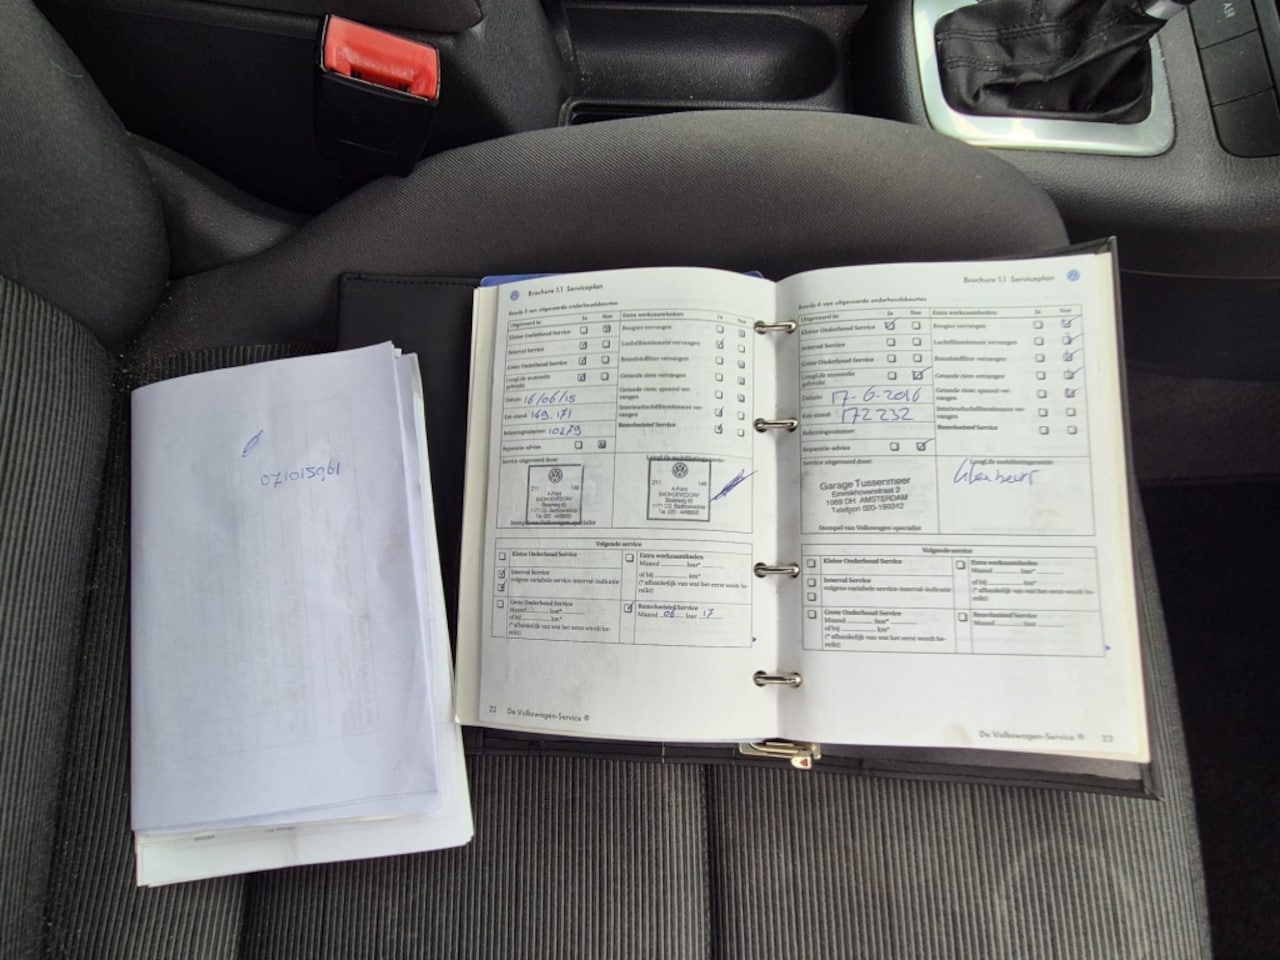 AIR
071015961
Brochure 1.1 Serviceplan
Bewijs 5 van uitgevoerde onderhoudsbeurten
Uitgevoerd in: Ja Nee
Kleine Onderhoud Service
Interval Service
Grote Onderhoud Service
LongLife motorolie
gebruikt
Datum: 16/06/15
Km-stand: 169.171
Rekeningnummer: 10279
Reparatie-advies
Extra werkzaamheden: Ja Nee
Bougies vervangen
Luchtfilterelement vervangen
Brandstoffilter vervangen
Getande riem vervangen
Getande riem: spanrol ver-
vangen
Interieurluchtfilterelement ver-
vangen
Remvloeistof Service
Service uitgevoerd door:
LongLife mobiliteitsgarantie:
211 148
A-Point
BADHOEVEDORP
1171 CG Badhoevedorp
211 148
A-Point
BADHOEVEDORP
1171 CG Badhoevedorp
Stempel van Volkswagen-specialist
Volgende service
Kleine Onderhoud Service
Interval Service
volgens variabele service-interval-indicatie
Grote Onderhoud Service
Maand Jaar*
of bij km*
(* afhankelijk van wat het eerst wordt be-
reikt)
Extra werkzaamheden
Maand Jaar*
of bij km*
(* afhankelijk van wat het eerst wordt be-
reikt)
Remvloeistof Service
Maand 06 Jaar 17
22 De Volkswagen-Service ®
Brochure 1.1 Serviceplan
Bewijs 6 van uitgevoerde onderhoudsbeurten
Uitgevoerd in: Ja Nee
Kleine Onderhoud Service
Interval Service
Grote Onderhoud Service
LongLife motorolie
gebruikt
Datum: 17-6-2016
Km-stand: 172232
Rekeningnummer:
Reparatie-advies
Extra werkzaamheden: Ja Nee
Bougies vervangen
Luchtfilterelement vervangen
Brandstoffilter vervangen
Getande riem vervangen
Getande riem: spanrol ver-
vangen
Interieurluchtfilterelement ver-
vangen
Remvloeistof Service
Service uitgevoerd door:
Garage Tussenmeer
1069 DH AMSTERDAM
Stempel van Volkswagen-specialist
LongLife mobiliteitsgarantie:
Volgende service
Kleine Onderhoud Service
Interval Service
volgens variabele service-interval-indicatie
Grote Onderhoud Service
Maand Jaar*
of bij km*
(* afhankelijk van wat het eerst wordt be-
reikt)
Extra werkzaamheden
Maand Jaar*
of bij km*
(* afhankelijk van wat het eerst wordt be-
reikt)
Remvloeistof Service
Maand Jaar
De Volkswagen-Service ® 23